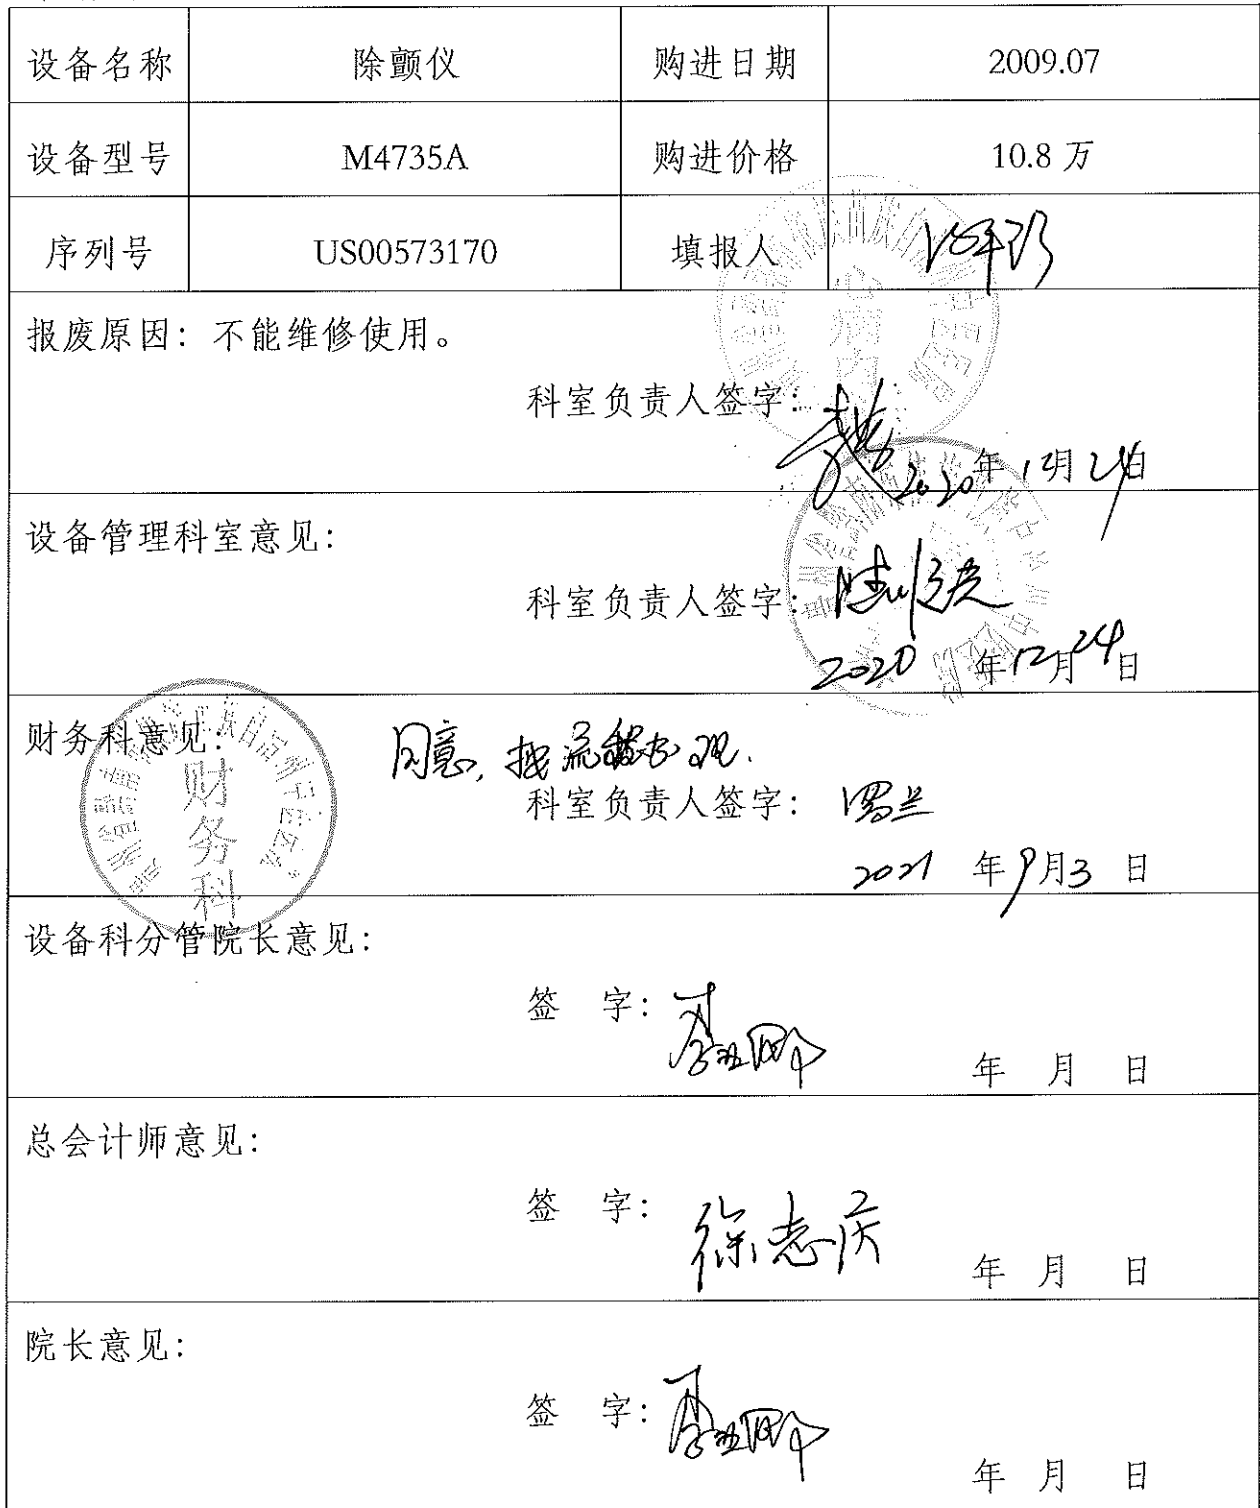 设备名称 除颤仪 购进日期 2009.07
设备型号 M4735A 购进价格 10.8 万
序列号 US00573170 填报人
报废原因：不能维修使用。
科室负责人签字：
2020年12月24日
设备管理科室意见：
科室负责人签字：
2020 年12月24日
财务科意见：
同意，按流程办理.
科室负责人签字：罗兰
2021 年9月3 日
财务科
设备科分管院长意见：
签 字：
年 月 日
总会计师意见：
签 字：徐志庆
年 月 日
院长意见：
签 字：
年 月 日